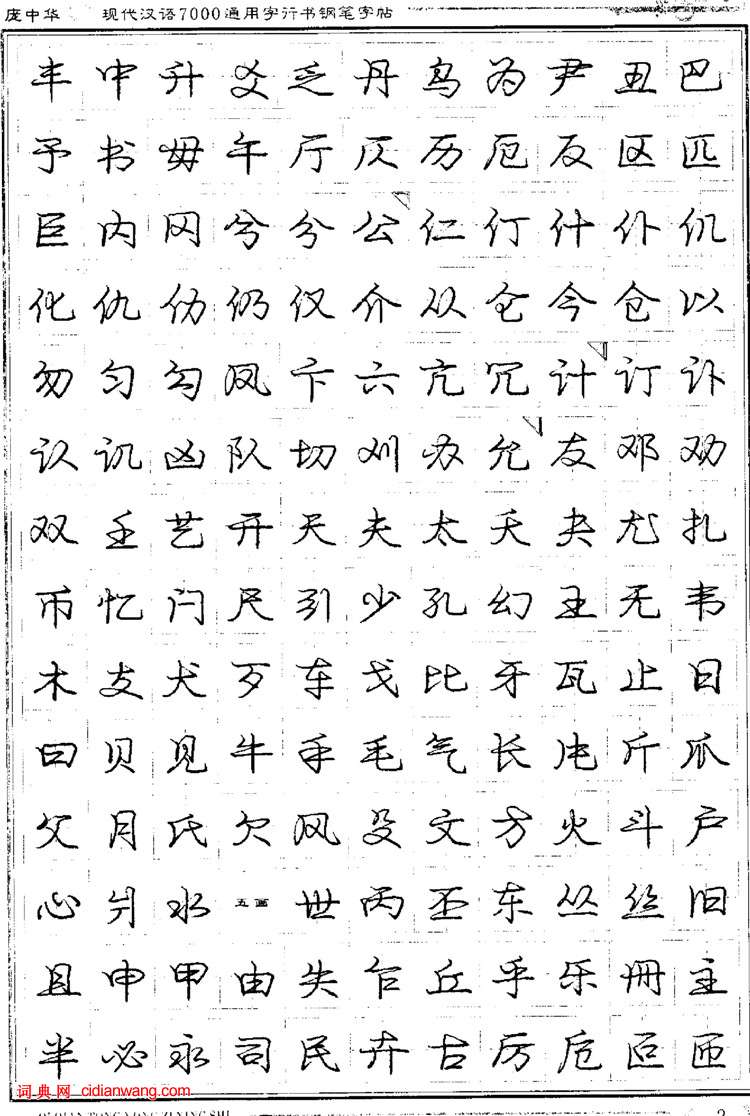 庞中华 现代汉语7000通用字行书钢笔字帖
丰中升爻乏丹鸟为尹丑巴
予书毋午厅仄历厄反区匹
巨内冈兮分公仁仃什仆仉
化仇伪仍仅介从仑今仓以
勿匀勾凤卞六亢冗计订讣
认讥凶队切刈办允友邓劝
双壬艺开天夫太夭夬尤扎
币忆闩尺引少孔幻王无韦
木支犬歹车戈比牙瓦止日
曰贝见牛手毛气长片斤爪
父月氏欠风殳文方火斗户
心爿水 五画 世丙丕东丛丝旧
且申甲由失乍丘乎乐册主
半必永司民卉古厉卮叵匝
词典网 cidianwang.com
2